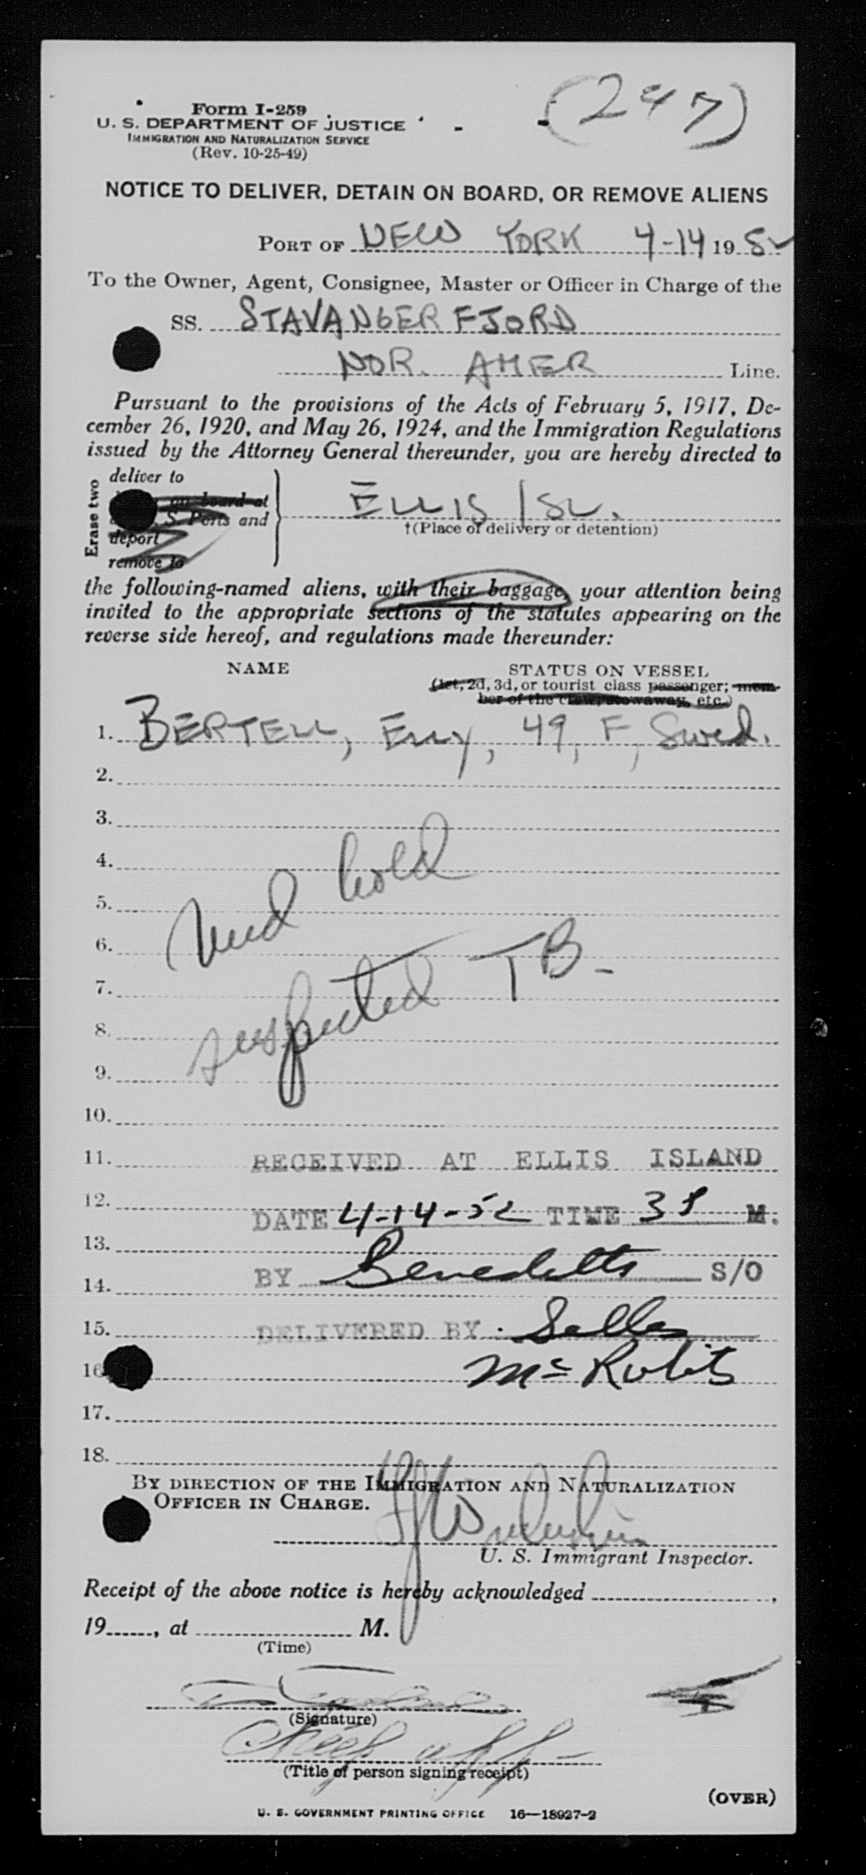 Form I-259
(247)
U. S. DEPARTMENT OF JUSTICE
IMMIGRATION AND NATURALIZATION SERVICE
(Rev. 10-25-49)
NOTICE TO DELIVER, DETAIN ON BOARD, OR REMOVE ALIENS
PORT OF NEW YORK 4-14 1952
To the Owner, Agent, Consignee, Master or Officer in Charge of the
SS. STAVANGER FJORD
NOR. AMER Line.
Pursuant to the provisions of the Acts of February 5, 1917, De-
cember 26, 1920, and May 26, 1924, and the Immigration Regulations
issued by the Attorney General thereunder, you are hereby directed to
Erase two
deliver to
on board at
S. Ports and
deport
remove to
ELLIS ISL.
†(Place of delivery or detention)
the following-named aliens, with their baggage, your attention being
invited to the appropriate sections of the statutes appearing on the
reverse side hereof, and regulations made thereunder:
NAME STATUS ON VESSEL
(1st, 2d, 3d, or tourist class passenger; mem-
ber of the crew, stowaway, etc.)
1. BERTELL, Emy, 49, F, Swed.
2.
3.
4.
5.
6.
7.
8.
9.
10.
med hold
suspected TB-
11. RECEIVED AT ELLIS ISLAND
12. DATE 4-14-52 TIME 3 P M.
13.
14. BY Benedetto S/O
15. DELIVERED BY
16
17.
18.
BY DIRECTION OF THE IMMIGRATION AND NATURALIZATION
OFFICER IN CHARGE.
U. S. Immigrant Inspector.
Receipt of the above notice is hereby acknowledged ,
19 , at M.
(Time)
(Signature)
Chief off-
(Title of person signing receipt)
(OVER)
U. S. GOVERNMENT PRINTING OFFICE 16—18927-2